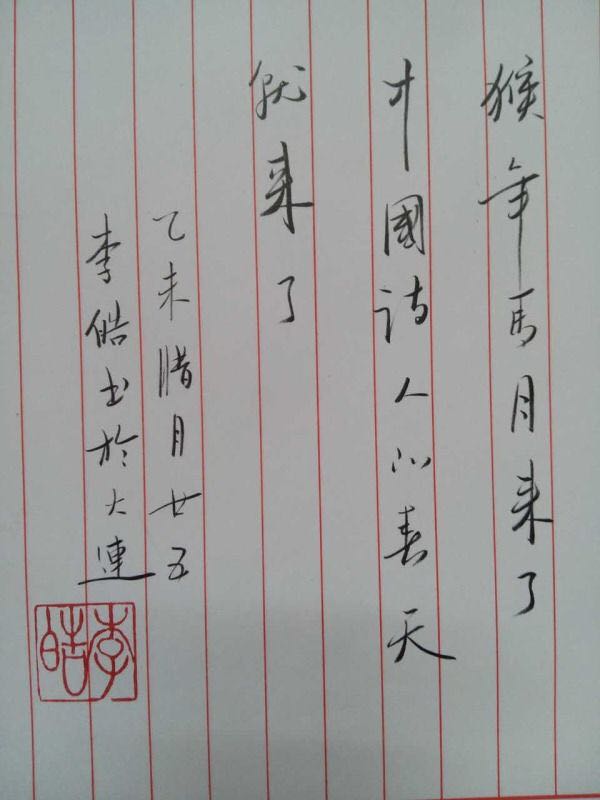 猴年馬月来了
中國诗人的春天
就来了
乙未腊月廿五
李皓书於大連
李皓